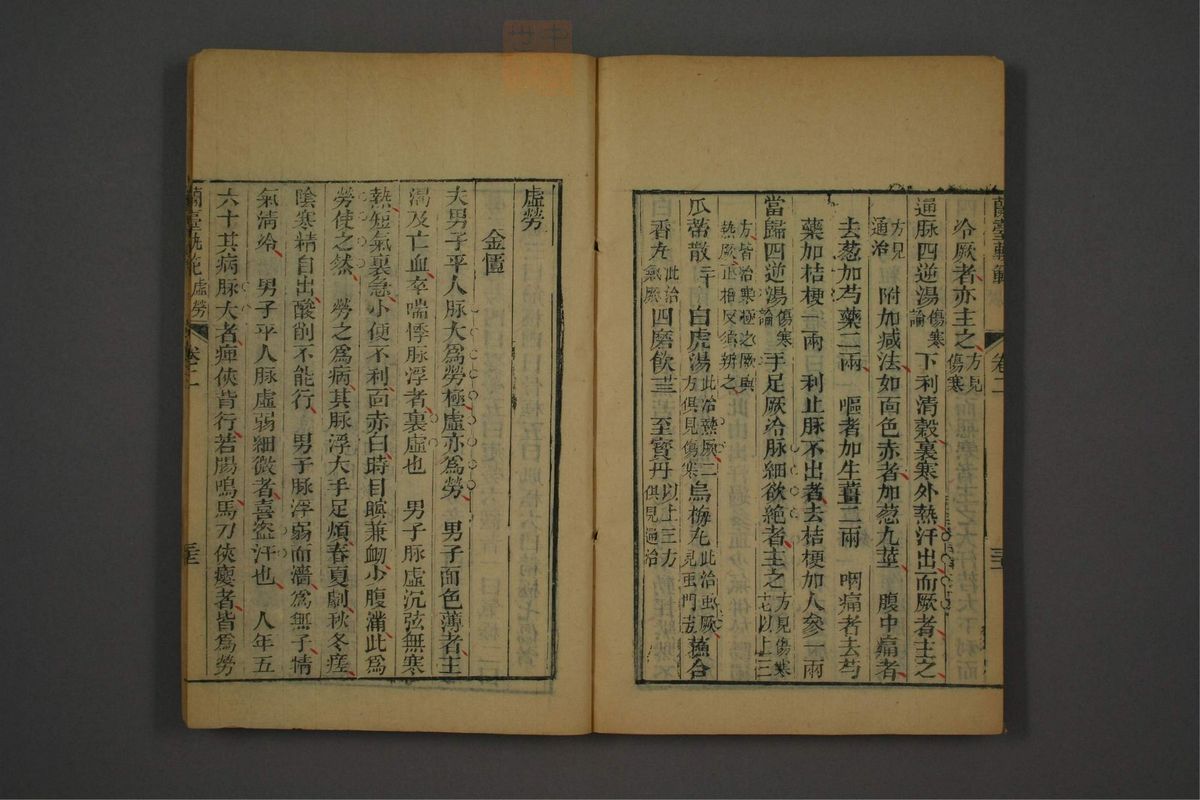 蘭臺軌範 卷二 三十二
冷厥者亦主之方見傷寒
通脉四逆湯傷寒論 下利清穀裏寒外熱汗出而厥者主之
方見通治 附加減法如面色赤者加葱九莖 腹中痛者
去葱加芍藥二兩 嘔者加生薑二兩 咽痛者去芍
藥加桔梗一兩 利止脉不出者去桔梗加人參一兩
當歸四逆湯傷寒論 手足厥冷脉細欲絶者主之方見傷寒 以上三
方皆治寒極之厥與熱厥正相反須辨之
瓜蒂散 白虎湯此治熱厥二方俱見傷寒 烏梅丸此治虫厥見虫門 蘓合
香丸此治氣厥 四磨飲 至寳丹以上三方俱見通治
虛勞
金匱
夫男子平人脉大爲勞極虛亦爲勞 男子面色薄者主
渴及亡血卒喘悸脉浮者裏虛也 男子脉虛沉弦無寒
熱短氣裏急小便不利面赤白時目瞑兼衂少腹滿此爲
勞使之然 勞之爲病其脉浮大手足煩春夏劇秋冬瘥
陰寒精自出酸削不能行 男子脉浮弱而濇爲無子情
氣淸冷 男子平人脉虛弱細微者喜盜汗也 人年五
六十其病脉大者痺俠背行若腸鳴馬刀俠癭者皆爲勞
蘭臺軌範 虛勞 卷二